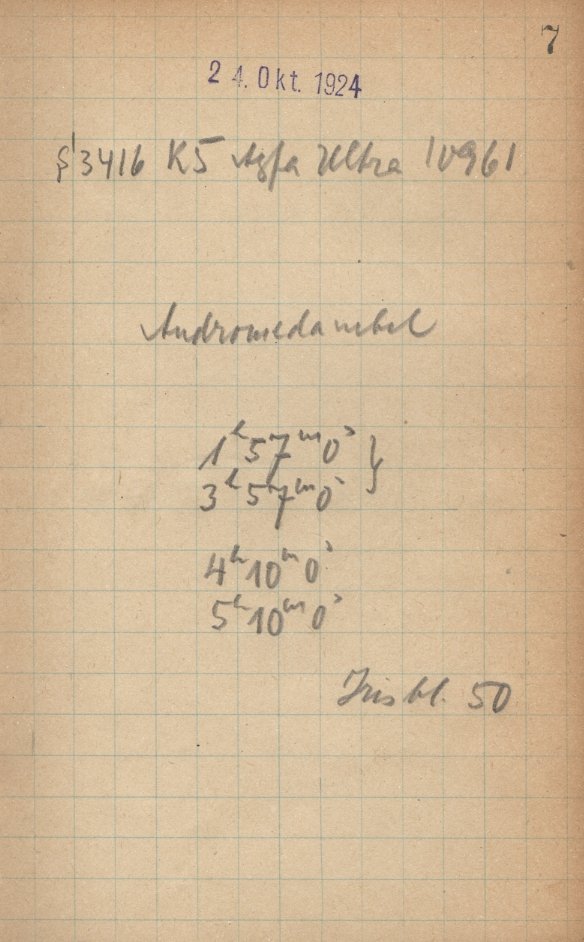 7
24. Okt. 1924
3416 K5 Agfa Ultra 10961
Andromedanebel
1ʰ57ᵐ0ˢ }
3ʰ57ᵐ0ˢ
4ʰ10ᵐ0ˢ
5ʰ10ᵐ0ˢ
Irisbl. 50